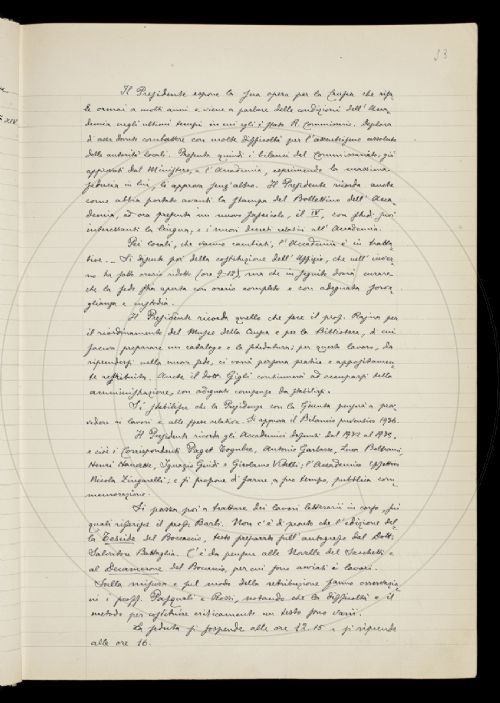 33
Il Presidente espone la sua opera per la Crusca che risa-
le ormai a molti anni e viene a parlare delle condizioni dell'Acca-
demia negli ultimi tempi in cui egli è stato R. Commissario. Dichiara
d'aver dovuto combattere con molte difficoltà per l'assenteismo assoluto
delle autorità locali. Presenta quindi i bilanci del Commissariato, già
approvati dal Ministero, e l'Accademia, esprimendo la massima
fiducia in lui, li approva senz'altro. Il Presidente ricorda anche
come abbia portato avanti la stampa del Bollettino dell'Acca-
demia, ed ora presenta un nuovo fascicolo, il IV, con studi
interessanti la lingua, e i nuovi decreti relativi all'Accademia.
Pei locali, che vanno cambiati, l'Accademia è in tratta-
tive. – Si discute poi della costituzione dell'Uffizio, che nell'inver-
no ha fatto orario ridotto (ore 9-12), ma che in seguito dovrà curare
che la sede stia aperta con orario completo e con adeguata sorve-
glianza e custodia.
Il Presidente ricorda quello che fece il prof. Rajna per
il riordinamento del Museo della Crusca e per la Biblioteca, di cui
faceva preparare un catalogo e la schedatura; per questo lavoro, da
riprendersi nella nuova sede, ci vorrà persona pratica e appositamen-
te retribuita. Anche il dott. Gigli continuerà ad occuparsi della
amministrazione, con adeguato compenso da stabilirsi.
Si stabilisce che la Presidenza con la Giunta penserà a prov-
vedere ai lavori e alle spese relative. Si approva il Bilancio preventivo 1936.
Il Presidente ricorda gli Accademici defunti dal 1932 al 1935,
e cioè i Corrispondenti Paget Toynbee, Antonio Garbasso, Luca Beltrami,
Henri Hauvette, Ignazio Guidi e Girolamo Vitelli; l'Accademico effettivo
Nicola Zingarelli; e si propone di farne a suo tempo pubblica com-
memorazione.
Si passa poi a trattare dei lavori letterarii in corso, sui
quali riferisce il prof. Barbi. Non c'è di pronto che l'edizione del-
la Teseide del Boccaccio, testo preparato sull'autografo dal Dott.
Salvatore Battaglia. C'è da pensare alle Novelle del Sacchetti e
al Decamerone del Boccaccio, per cui sono avviati i lavori.
Sulla misura e sul modo della retribuzione fanno osservazio-
ni i proff. Pasquali e Rossi, notando che la difficoltà e il
metodo per costituire criticamente un testo sono varii.
La seduta si sospende alle ore 12.15 e si riprende
alle ore 16.